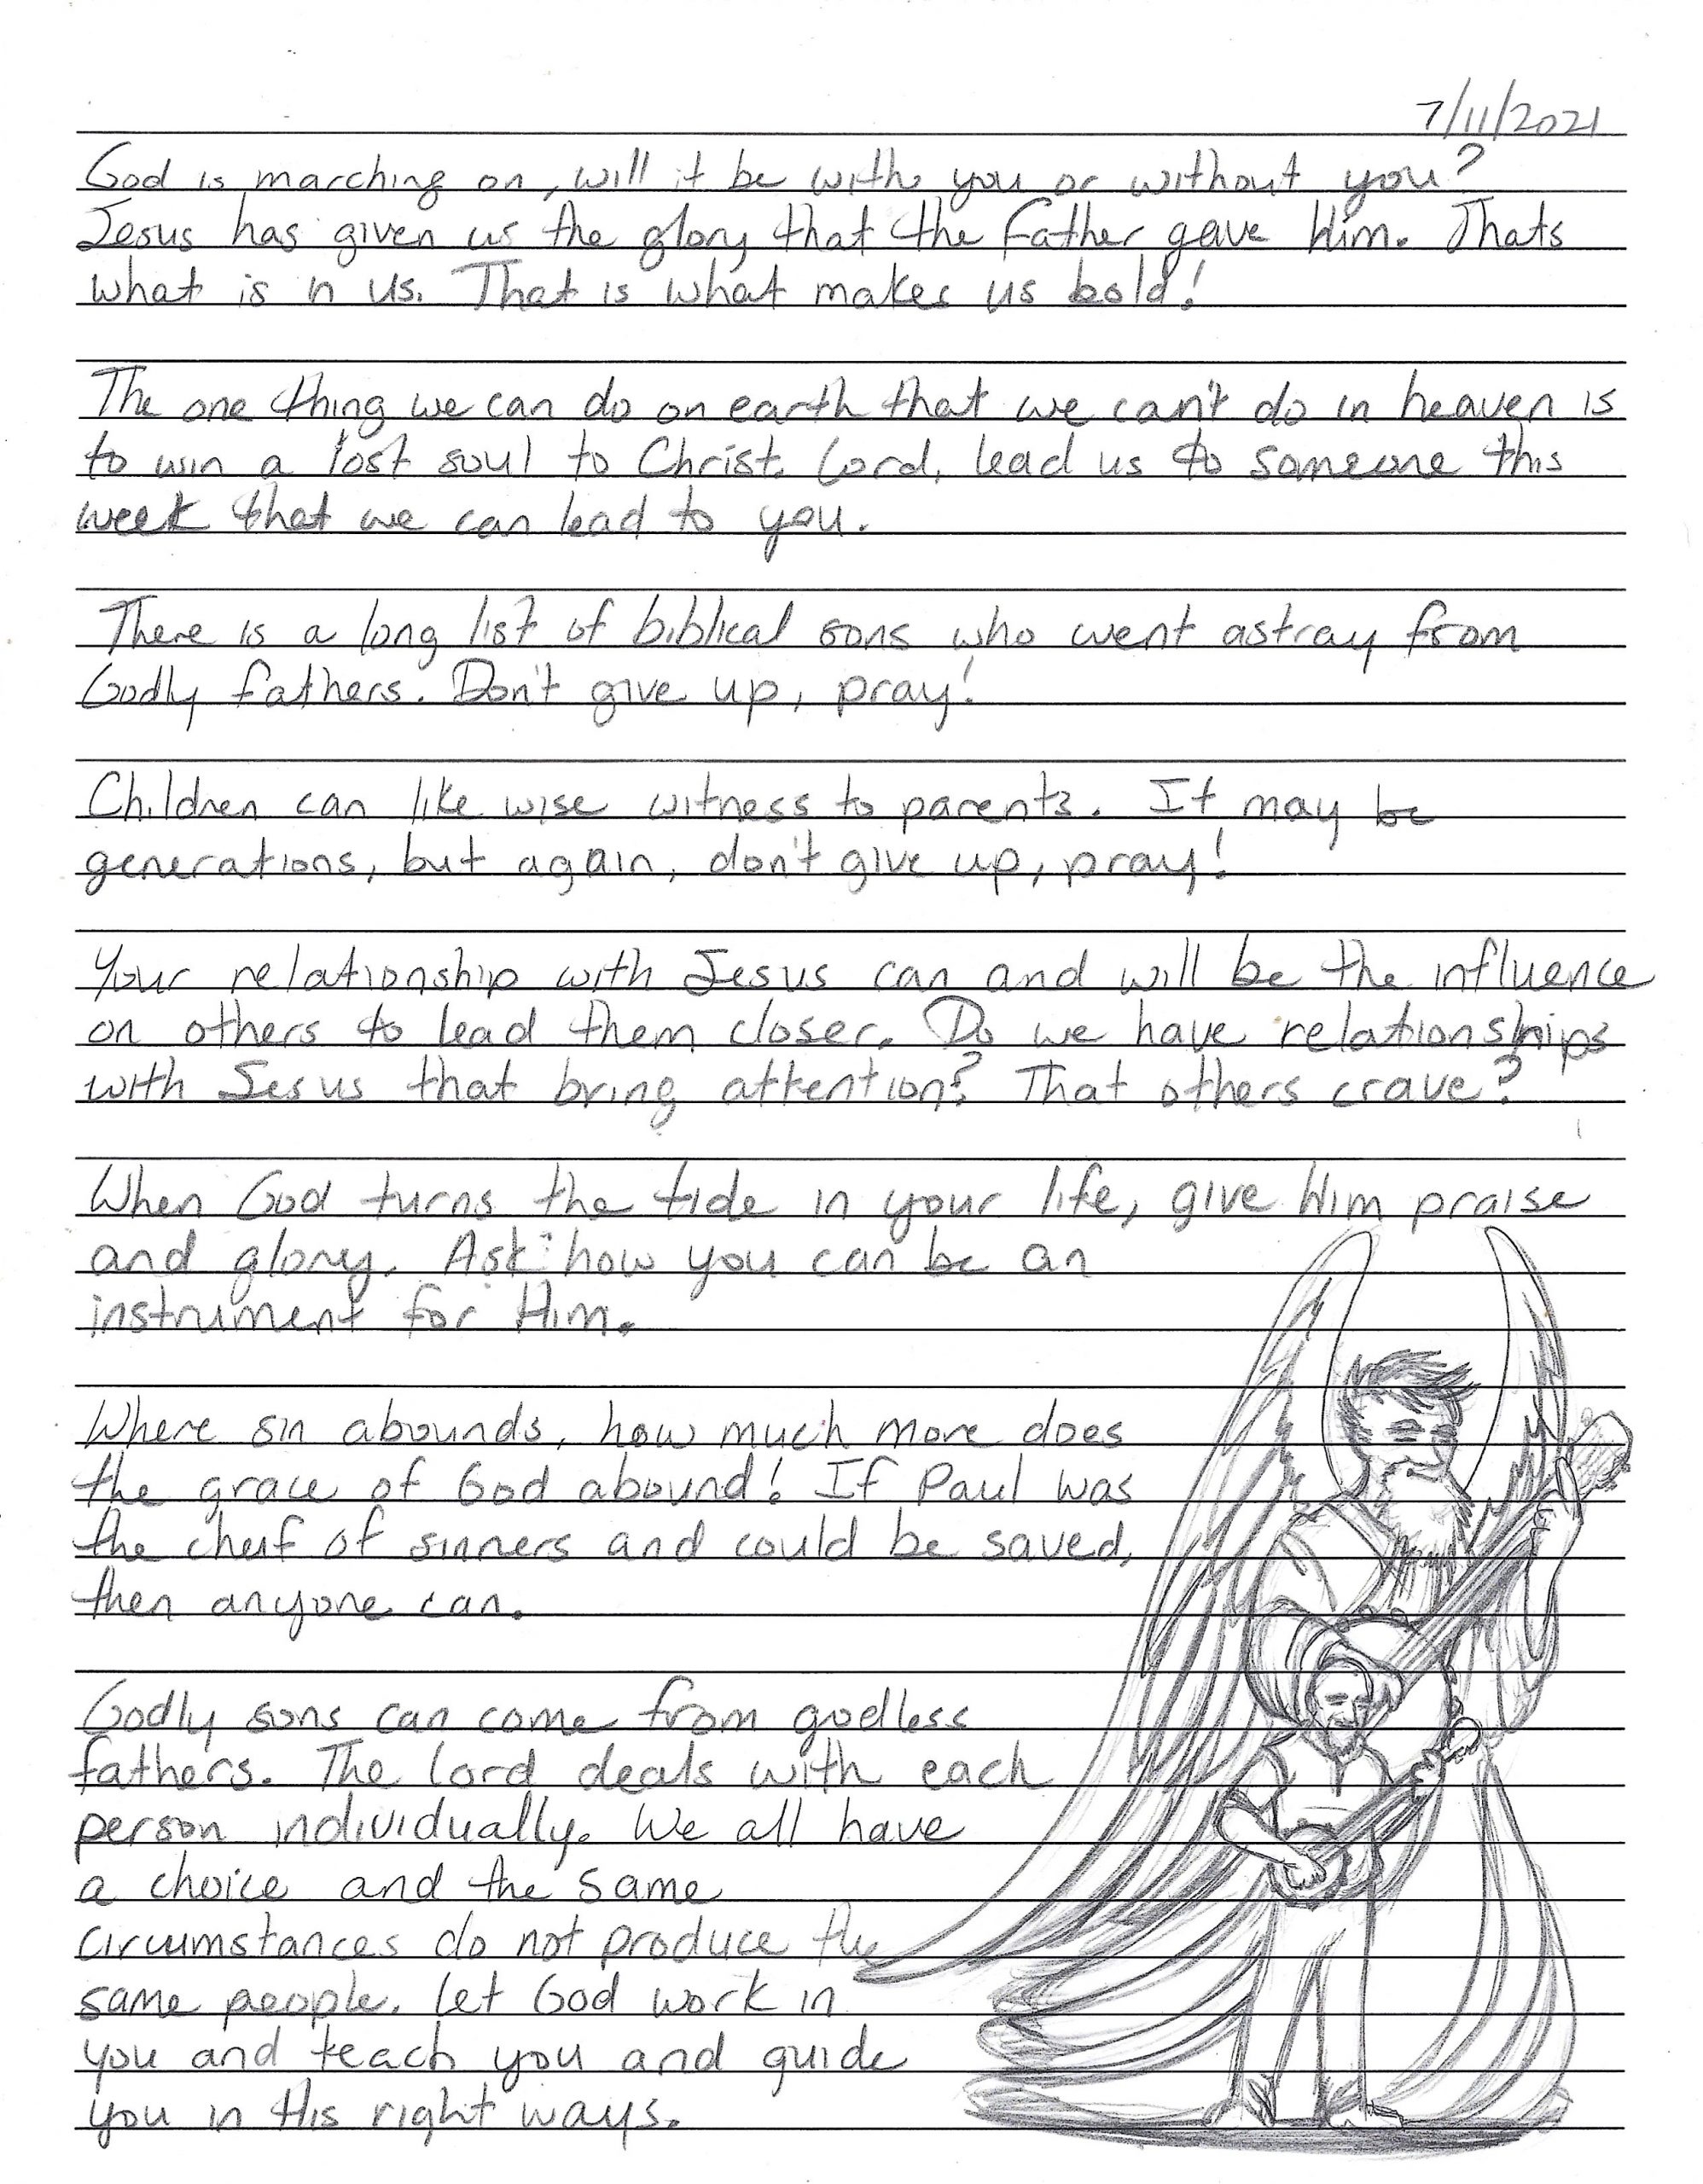 7/11/2021
God is marching on, will it be with you or without you?
Jesus has given us the glory that the Father gave Him. Thats
what is in us. That is what makes us bold!
The one thing we can do on earth that we can't do in heaven is
to win a lost soul to Christ. Lord, lead us to someone this
week that we can lead to you.
There is a long list of biblical sons who went astray from
Godly fathers. Don't give up, pray!
Children can like wise witness to parents. It may be
generations, but again, don't give up, pray!
Your relationship with Jesus can and will be the influence
on others to lead them closer. Do we have relationships
with Jesus that bring attention? That others crave?
When God turns the tide in your life, give Him praise
and glory. Ask how you can be an
instrument for Him.
Where sin abounds, how much more does
the grace of God abound! If Paul was
the cheif of sinners and could be saved,
then anyone can.
Godly sons can come from godless
fathers. The Lord deals with each
person individually. We all have
a choice and the same
circumstances do not produce the
same people. Let God work in
you and teach you and guide
you in His right ways.